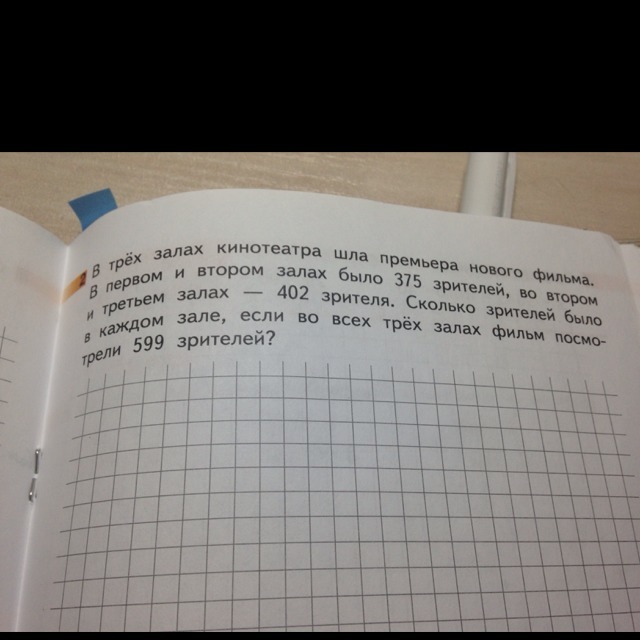 В трёх залах кинотеатра шла премьера нового фильма.
В первом и втором залах было 375 зрителей, во втором
и третьем залах — 402 зрителя. Сколько зрителей было
в каждом зале, если во всех трёх залах фильм посмо-
трели 599 зрителей?